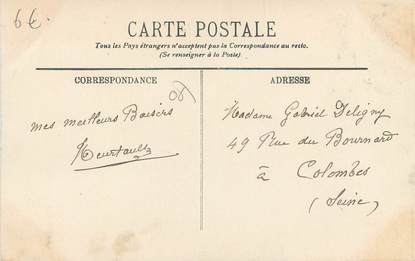 6€
CARTE POSTALE
Tous les Pays étrangers n'acceptent pas la Correspondance au recto.
(Se renseigner à la Poste)
CORRESPONDANCE
ADRESSE
06
mes meilleurs Baisers
Heurtault
Madame Gabriel Deligny
49 Rue du Bournard
à Colombes
(Seine)